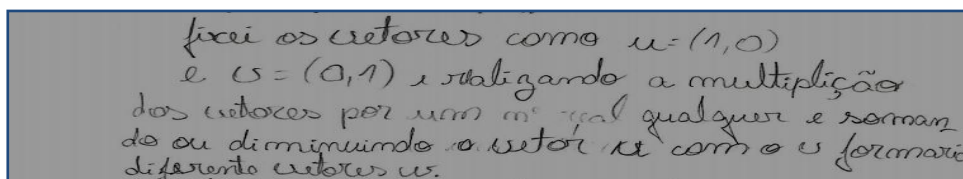 fixei os vetores como u=(1,0)
e v=(0,1) e realizando a multiplição
dos vetores por um nº real qualquer e soman
do ou diminuindo o vetor u com o v formaria
diferente vetores w.